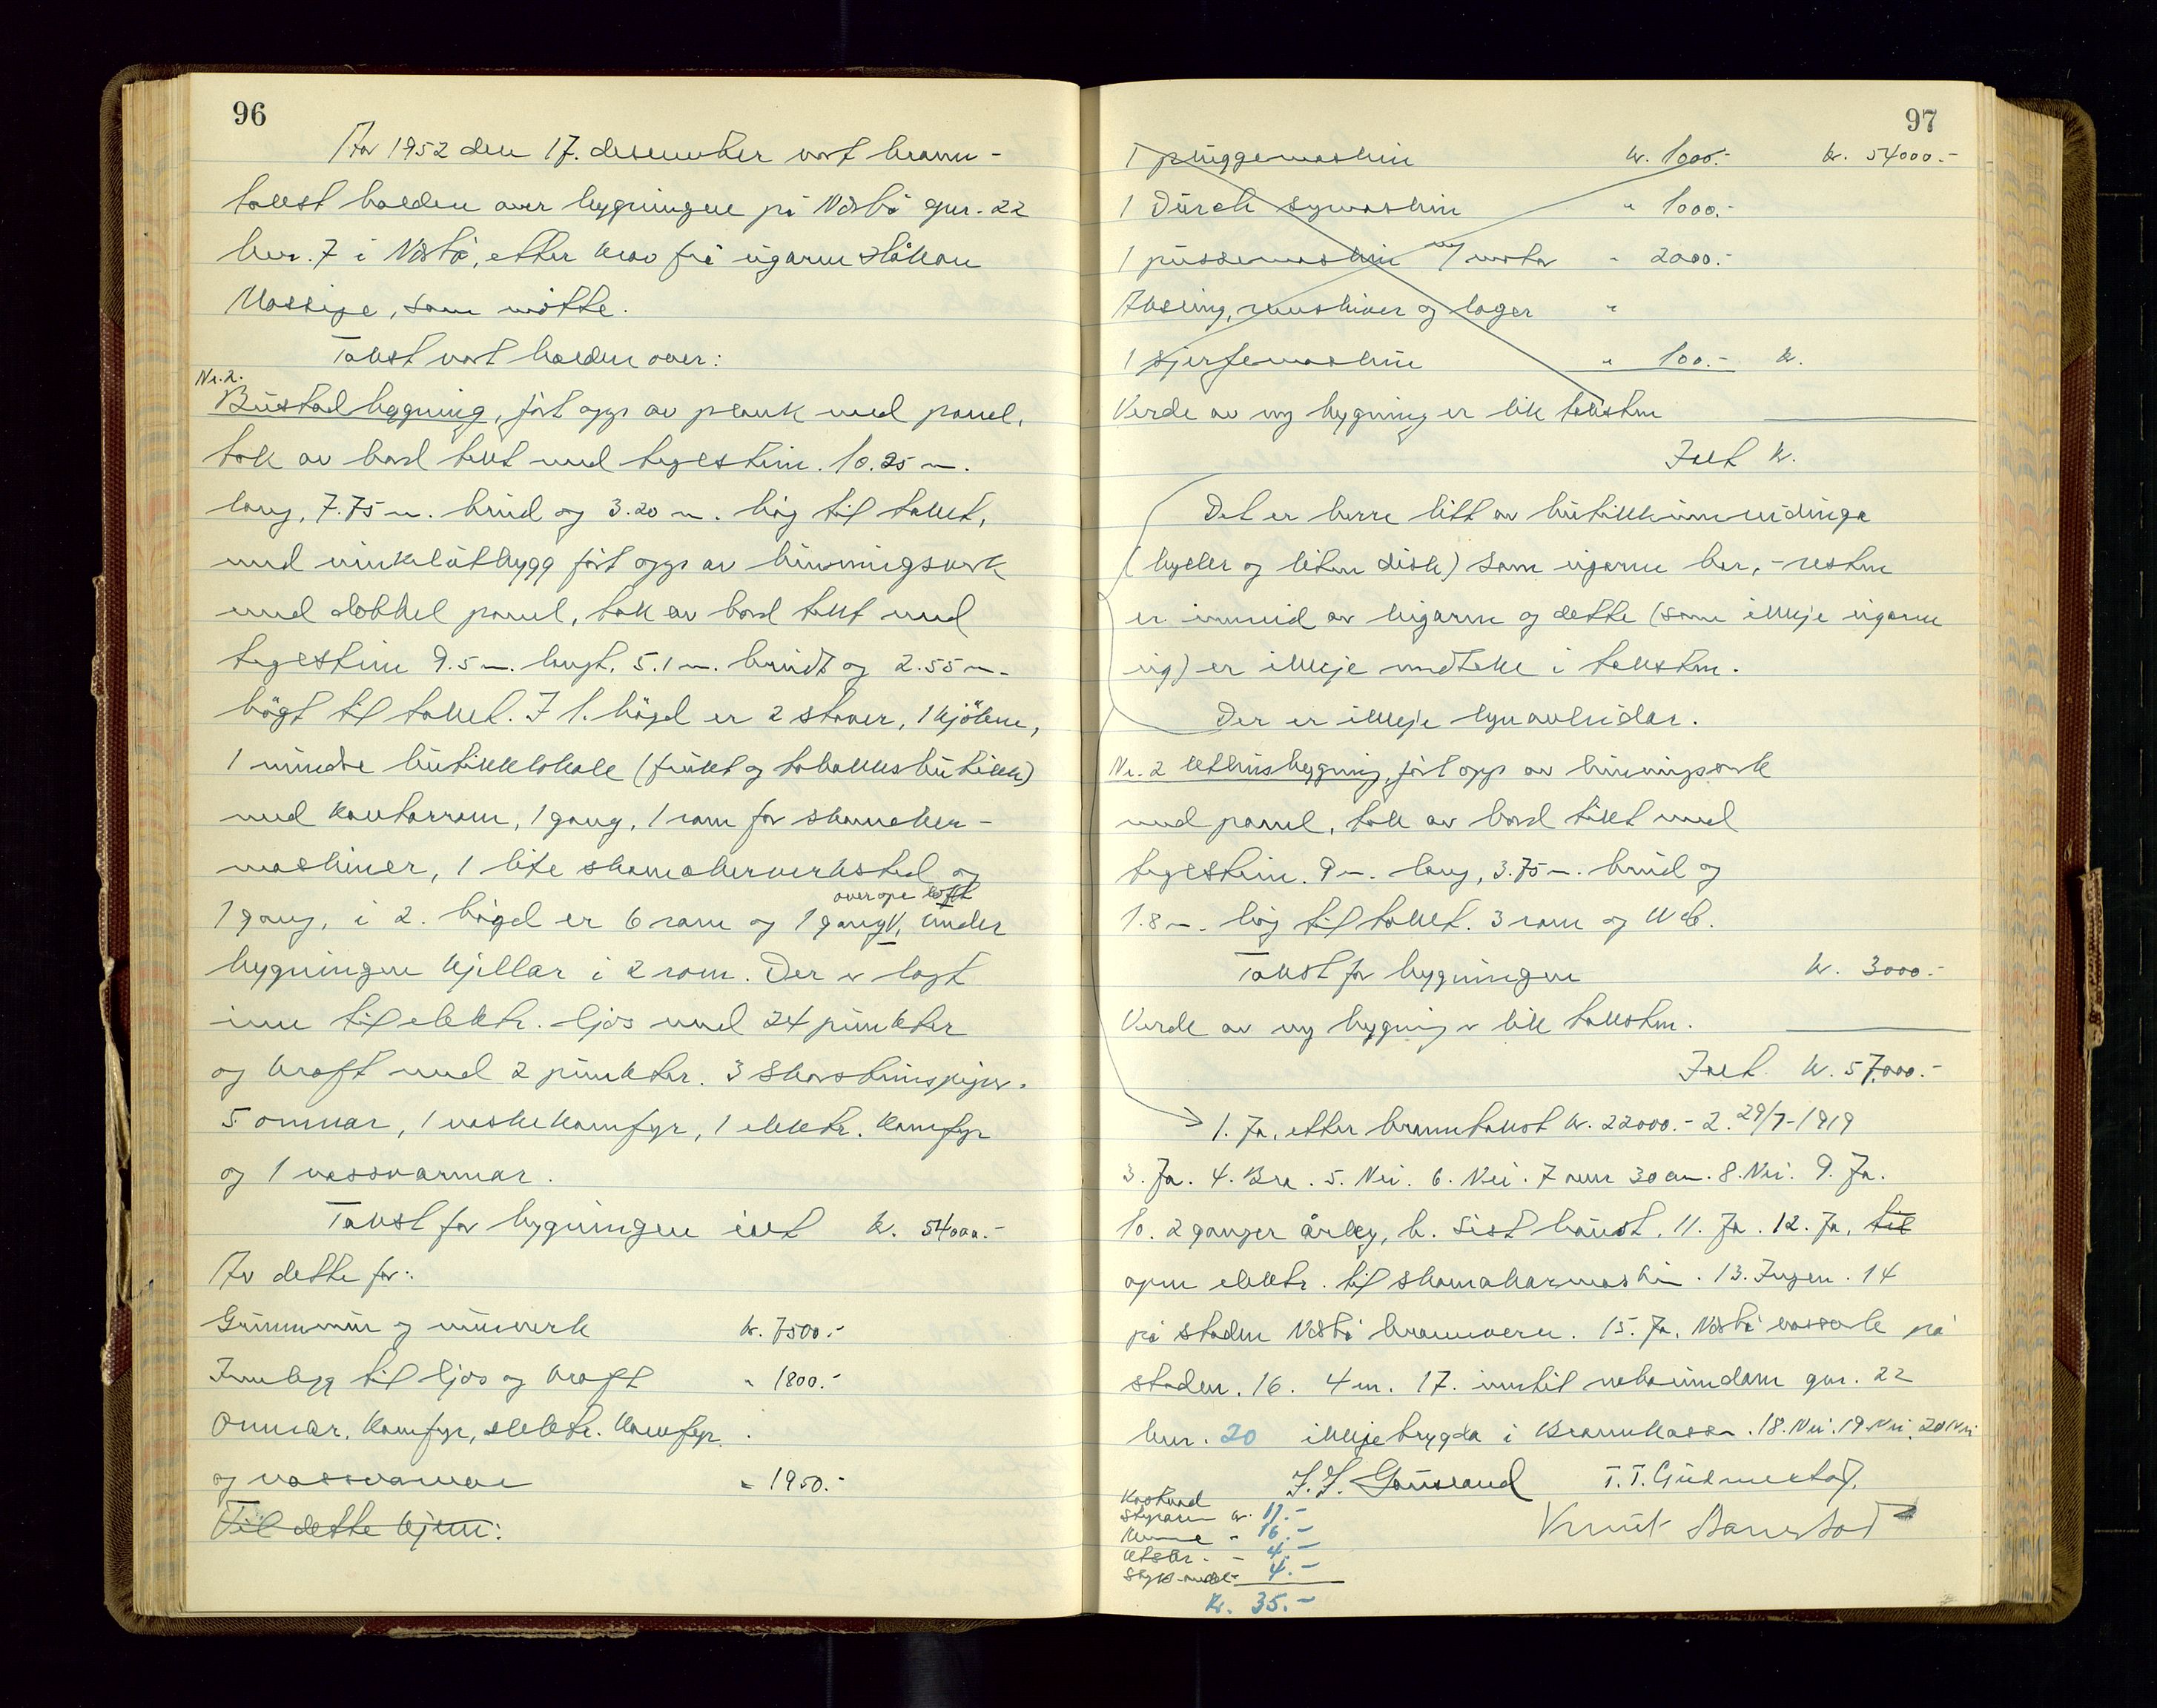 96
År 1952 den 17. desember vart brann-
takst halden over bygningen på Nærbø gnr. 22
bnr. 7 i Nærbø, etter krav frå eigaren Håkon
som møtte.
Takst vart halden over:
Nr. 2.
Bustadbygning, ført opp av plank med panel,
tak av bord tekt med teglstein. 10.25 m.
lang, 7.75 m. breid og 3.20 m. høg til taket,
med vinkelutbygg ført opp av binningsverk
med dobbel panel, tak av bord tekt med
teglstein 9.5 m. langt, 5.1 m. breidt og 2.55 m.
høgt til taket. I 1. høgd er 2 stover, 1 kjøken,
1 mindre butikklokale (frukt og tobakksbutikk)
med kontorrom, 1 gang, 1 rom for skomaker-
maskiner, 1 lite skomakerverksted og
over ope loft
1 gang, i 2. høgd er 6 rom og 1 gang, under
bygningen kjellar i 2 rom. Der er lagt
inn til elektr. ljos med 24 punkter
og kraft med 2 punkter. 3 skorsteinspiper.
5 omnar, 1 vaskekomfyr, 1 elektr. komfyr
og 1 vassvarmar.
Takst for bygningen ialt kr. 54000.-
Av dette for:
Grunnmur og murverk kr. 7500.-
Innlegg til ljos og kraft " 1800.-
Omnar, komfyr, elektr. komfyr
og vassvarmar " 1950.-
Til dette kjem:
97
1 pluggemaskin kr. 1000.- kr. 54000.-
1 Dürch symaskin " 1000.-
1 pussemaskin m/ motor " 2000.-
Aksling, remskiver og lager "
1 skjerfemaskin " 100.- kr.
Verde av ny bygning er lik taksten
Ialt kr.
Det er berre litt av butikkinnreidinga
(hyller og liten disk) som eigaren her, - resten
er innreid av leigaren og dette (som ikkje eigaren
eig) er ikkje medteke i taksten.
Der er ikkje lynavleidar.
Nr. 2 Uthusbygning, ført opp av binningsverk
med panel, tak av bord tekt med
teglstein. 9 m. lang, 3.75 m. breid og
1.8 m. høg til taket. 3 rom og W.c.
Takst for bygningen kr. 3000.-
Verde av ny bygning er lik taksten.
Ialt kr. 57,000.-
1. Ja, etter branntakst kr. 22000.- 2. 29/7-1919
3. Ja. 4. Bra. 5. Nei. 6. Nei. 7 over 30 cm. 8. Nei. 9. Ja.
10. 2 ganger årleg, b. Sist haust. 11. Ja. 12. Ja, til
open elektr. til skomakarmaskin. 13. Ingen. 14
på staden Nærbø brannvern. 15. Ja, Nærbø vassverk på
staden. 16. 4 m. 17. inntil naboeindom gnr. 22
bnr. 20 ikkje trygda i Brannkassa. 18. Nei. 19. Nei. 20 Nei
T. T. Gudmestad.
Kostnad
Styraren kr. 17.-
Menne " 16.-
Utskr. - 4.-
4.-
Kr. 35.-